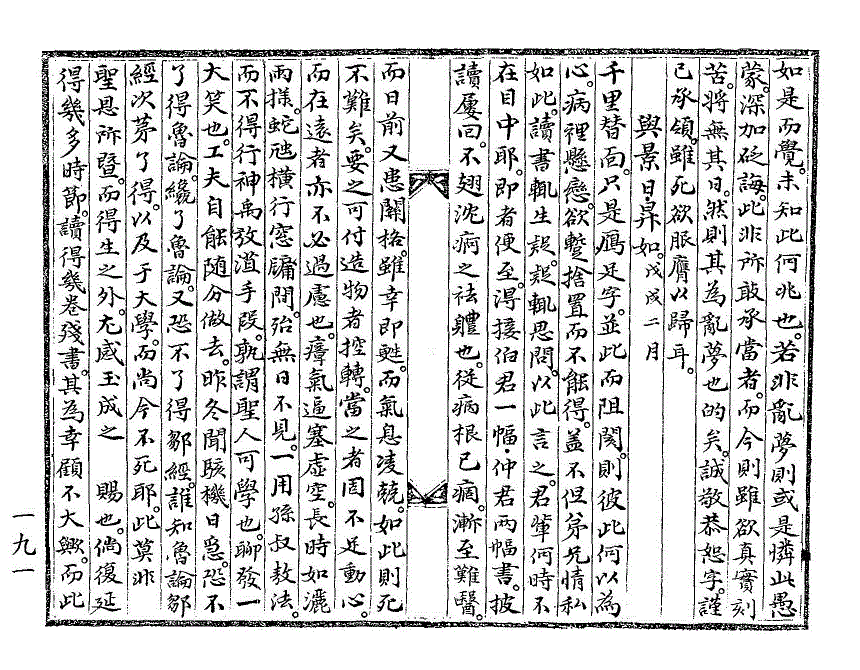 如是而覺。未知此何兆也。若非亂夢則或是憐此愚
蒙。深加砭誨。此非所敢承當者。而今則雖欲真實刻
苦。將無其日。然則其為亂夢也的矣。誠敬恭恕字。謹
已承領。雖死欲服膺以歸耳。
與景日昇如。戊戌二月
千里替面。只是鴈足字。並此而阻閡。則彼此何以為
心。病裡懸戀。欲蹔捨置而不能得。盖不但弟兄情私
如此。讀書輒生疑。疑輒思問。以此言之。君輩何時不
在目中耶。即者便至。得接伯君一幅・仲君兩幅書。披
讀屢回。不翅沈痾之祛軆也。從病根已痼。漸至難醫。
而日前又患關格。雖幸即甦。而氣息凌兢。如此則死
不難矣。要之可付造物者控轉。當之者固不足動心。
而在遠者亦不必過慮也。瘴氣逼塞虛空。長時如灑
雨㨾。蛇虺橫行窓牖間。殆無日不見。一用孫叔敖法。
而不得行神禹放菹手段。孰謂聖人可學也。聊發一
大笑也。工夫自能隨分做去。昨冬聞駭機日急。恐不
了得魯論。纔了魯論。又恐不了得鄒經。誰知魯論鄒
經次苐了得。以及于大學。而尚今不死耶。此莫非
聖恩所曁。而得生之外。尤感玉成之　賜也。倘復延
得幾多時節。讀得幾卷殘書。其為幸顧不大歟。而此
一九一